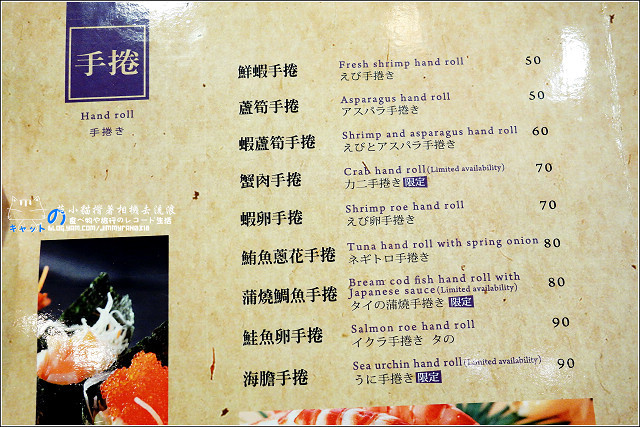 手捲
Hand roll
手捲き
鮮蝦手捲
Fresh shrimp hand roll 50
えび手捲き
蘆筍手捲
Asparagus hand roll 50
アスパラ手捲き
蝦蘆筍手捲
Shrimp and asparagus hand roll 60
えびとアスパラ手捲き
蟹肉手捲
Crab hand roll(Limited availability) 70
カニ手捲き 限定
蝦卵手捲
Shrimp roe hand roll 70
えび卵手捲き
鮪魚蔥花手捲
Tuna hand roll with spring onion 80
ネギトロ手捲き
蒲燒鯛魚手捲
Bream cod fish hand roll with
Japanese sauce(Limited availability) 80
タイの蒲焼手捲き 限定
鮭魚卵手捲
Salmon roe hand roll 90
イクラ手捲き タの
海膽手捲
Sea urchin hand roll(Limited availability) 90
うに手捲き 限定
小貓揹著相機去流浪
の
キャット